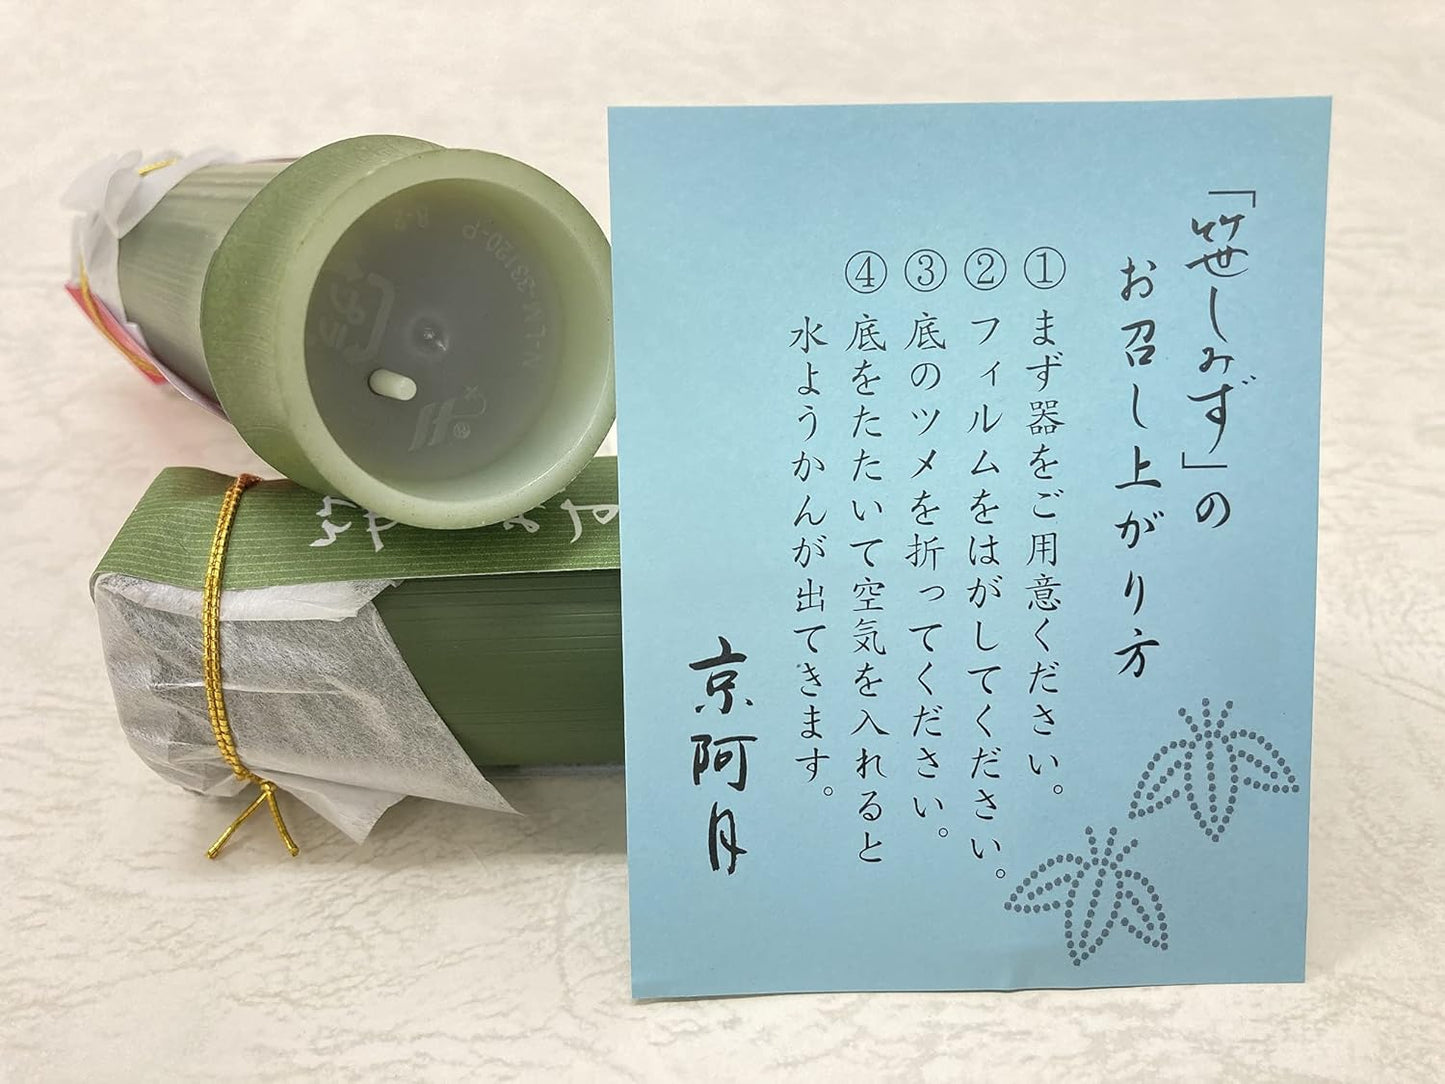 「笹しみず」の
お召し上がり方
①まず器をご用意ください。
②フィルムをはがしてください。
③底のツメを折ってください。
④底をたたいて空気を入れると
水ようかんが出てきます。
京阿月